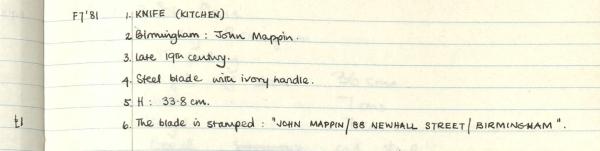 F7'81 1. KNIFE (KITCHEN)
2. Birmingham : John Mappin.
3. Late 19th century.
4. Steel blade with ivory handle.
5. H : 33.8 cm.
6. The blade is stamped : "JOHN MAPPIN/88 NEWHALL STREET/ BIRMINGHAM".